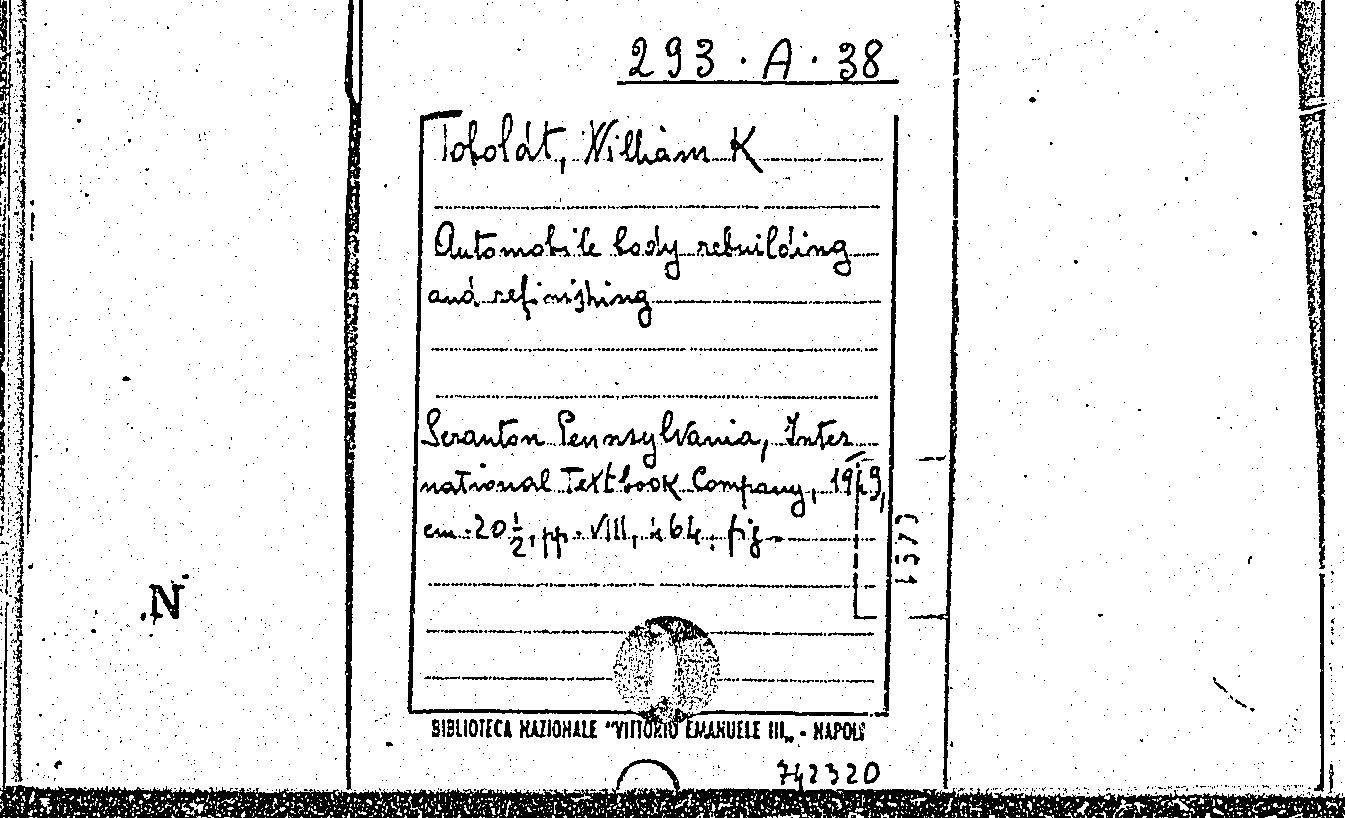 293 · A · 38
Toboldt, William K
Automobile body rebuilding
and refinishing
Scranton Pennsylvania, Inter
national Textbook Company, 1949,
cm. 20 1/2, pp. VIII, 464, fig.
N
BIBLIOTECA NAZIONALE "VITTORIO EMANUELE III„ - NAPOLI
742320